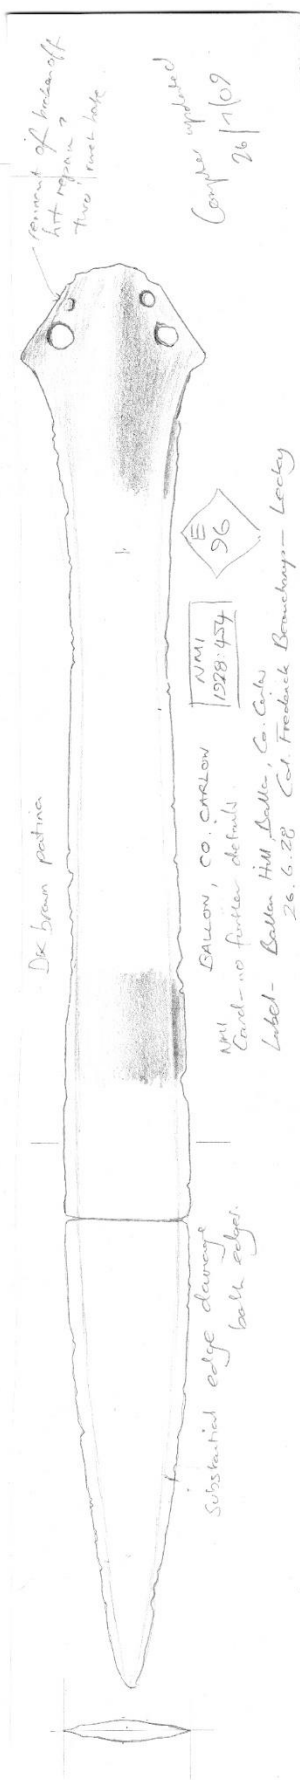 remnant of broken off
hilt repair?
rivet hole
Computer updated
26/7/09
Dk brown patina
E
96
NMI
1928:454
BALLON, CO. CARLOW
NMI
Card - no further details.
Label - Ballon Hill, Ballon, Co. Carlow
26.6.28 Col. Frederick Beauchamp - Lecky
Substantial edge damage
both edges.